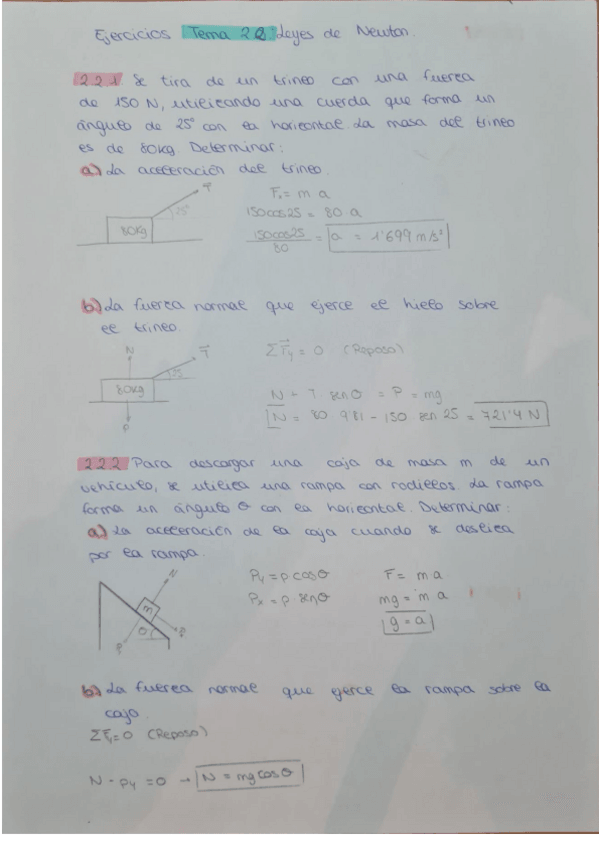 Ejercicios Tema 2.2: Leyes de Newton.
2.2.1. Se tira de un trineo con una fuerza
de 150 N, utilizando una cuerda que forma un
ángulo de 25° con la horizontal. La masa del trineo
es de 80kg. Determinar:
a) La aceleración del trineo.
T
25°
80kg
Fx = m a
150cos25 = 80 a
150cos25 / 80 = a = 1'699 m/s²
b) La fuerza normal que ejerce el hielo sobre
el trineo.
N
T
25
80kg
P
ΣFy = 0 (Reposo)
N + T · senθ = P = mg
N = 80 · 9'81 - 150 sen 25 = 721'4 N
2.2.2. Para descargar una caja de masa m de un
vehículo, se utiliza una rampa con rodillos. La rampa
forma un ángulo θ con la horizontal. Determinar:
a) La aceleración de la caja cuando se desliza
por la rampa.
N
m
θ
P
Py = p cosθ
Px = p senθ
F = m a
mg = m a
g = a
b) La fuerza normal que ejerce la rampa sobre la
caja.
ΣFy = 0 (Reposo)
N - Py = 0 → N = mg cosθ